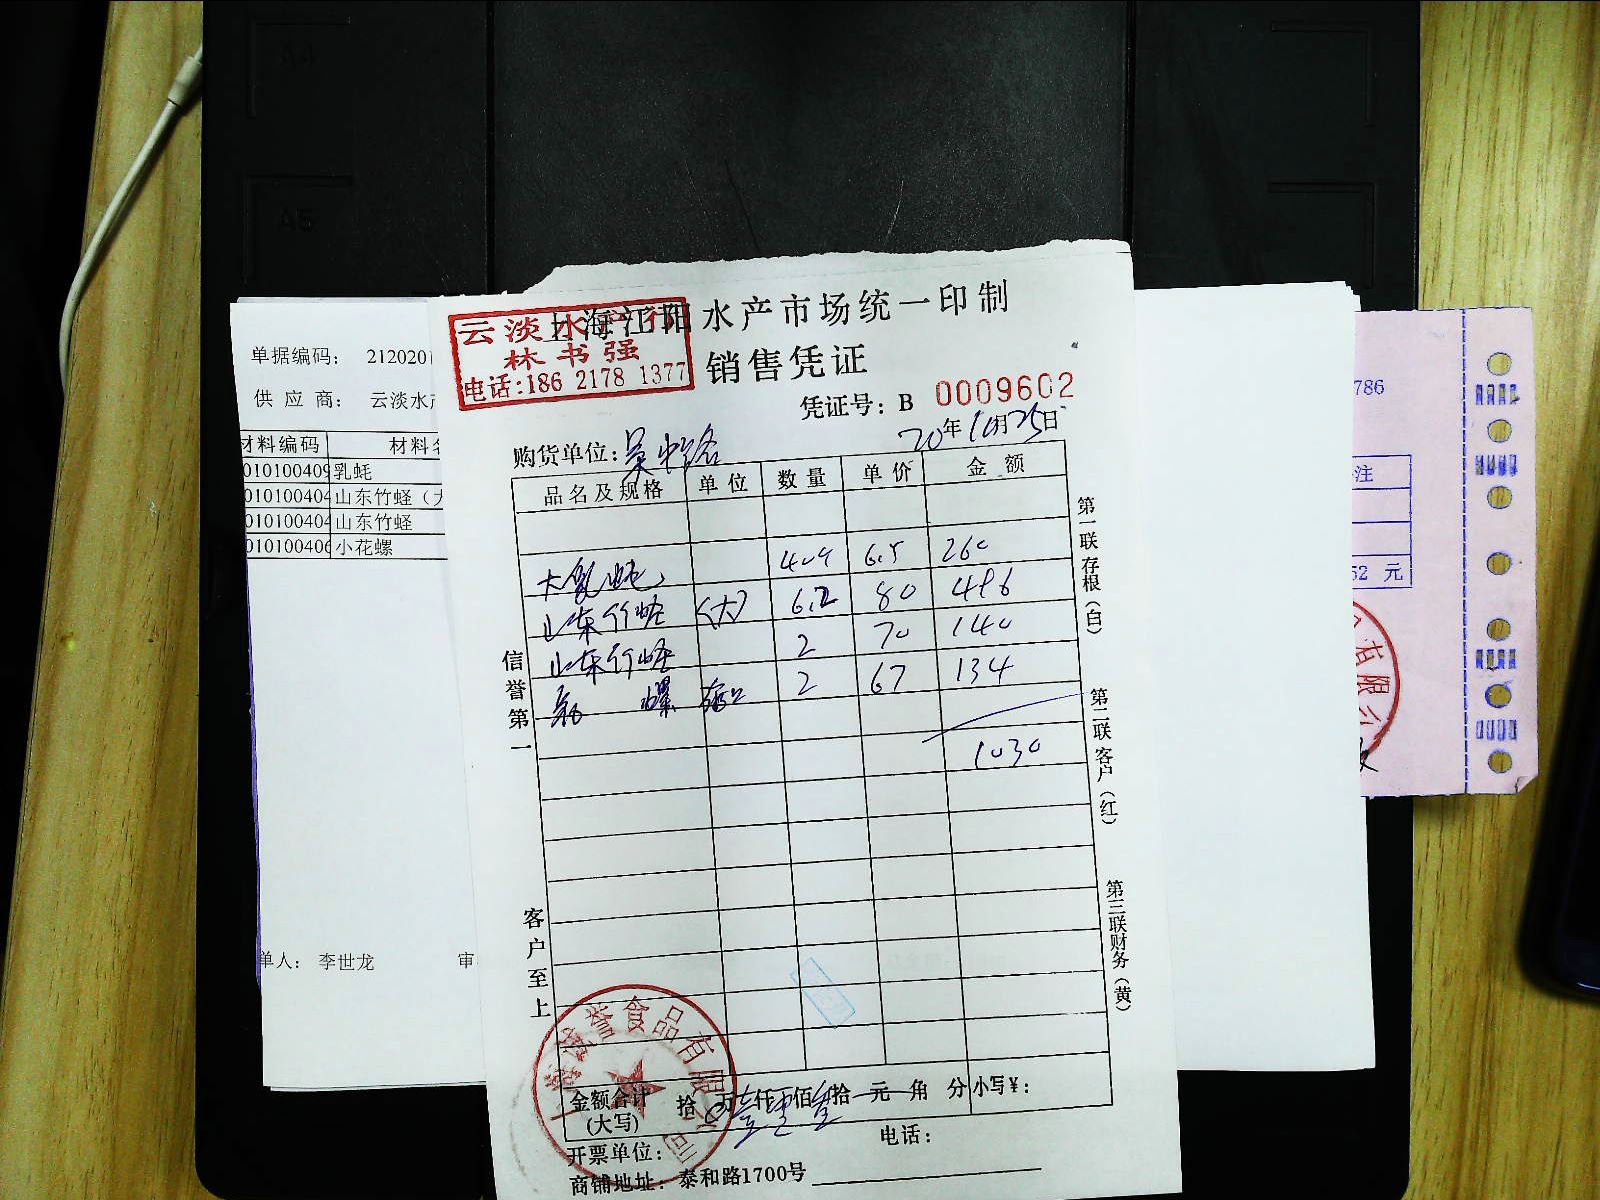 上海江阳水产市场统一印制
销售凭证
云淡水产行
林书强
电话:186 2178 1377
凭证号: B 0009602
20年10月25日
购货单位:吴中路
品名及规格 单位 数量 单价 金额
大乳蚝 6.5 260
山东竹蛏 (大) 6.2 80 496
山东竹蛏 2 70 140
螺 2 67 134
1030
信誉第一
客户至上
第一联存根(白)
第二联客户(红)
第三联财务(黄)
金额合计(大写) 拾 万 仟 佰 拾 元 角 分 小写¥:
开票单位: 电话:
商铺地址: 泰和路1700号
誉食品有限公司
单据编码: 212020
供应商: 云淡水
材料编码 材料
01010040 乳蚝
01010040 山东竹蛏(大
01010040 山东竹蛏
01010040 小花螺
单人: 李世龙 审
A4
A5
786
注
52 元
有限公